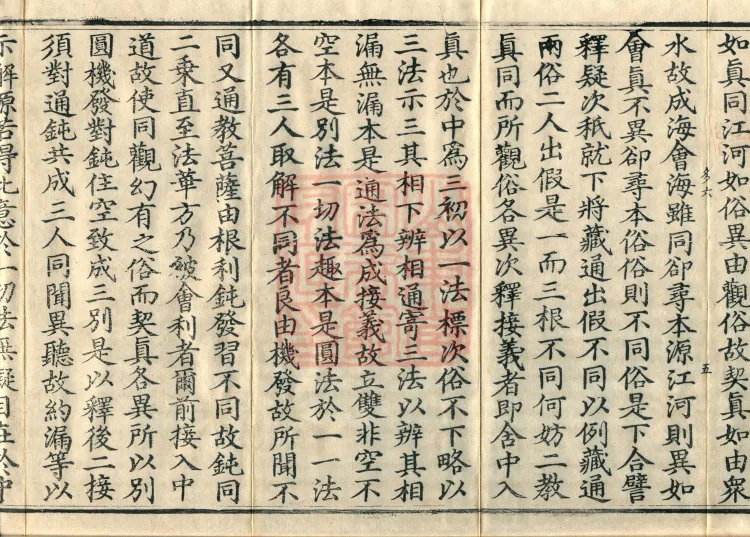 如真同江河如俗異由觀俗故契真如由衆
水故成海會海雖同卻尋本源江河則異如
會真不異卻尋本俗俗則不同俗是下合譬
釋疑次秖就下將藏通出假不同以例藏通
兩俗二人出假是一而三根不同何妨二教
真同而所觀俗各異次釋接義者即舍中入
真也於中為三初以一法標次俗不下略以
三法示三其相下辨相通寄三法以辨其相
漏無漏本是通法為成接義故立雙非空不
空本是別法一切法趣本是圓法於一一法
各有三人取解不同者良由機發故所聞不
同又通教菩薩由根利鈍發習不同故鈍同
二乘直至法華方乃被會利者爾前接入中
道故使同觀幻有之俗而契真各異所以別
圓機發對鈍住空致成三別是以釋後二接
須對通鈍共成三人同聞異聽故約漏等以
示解源若得此意於一切法無疑自在於中
五